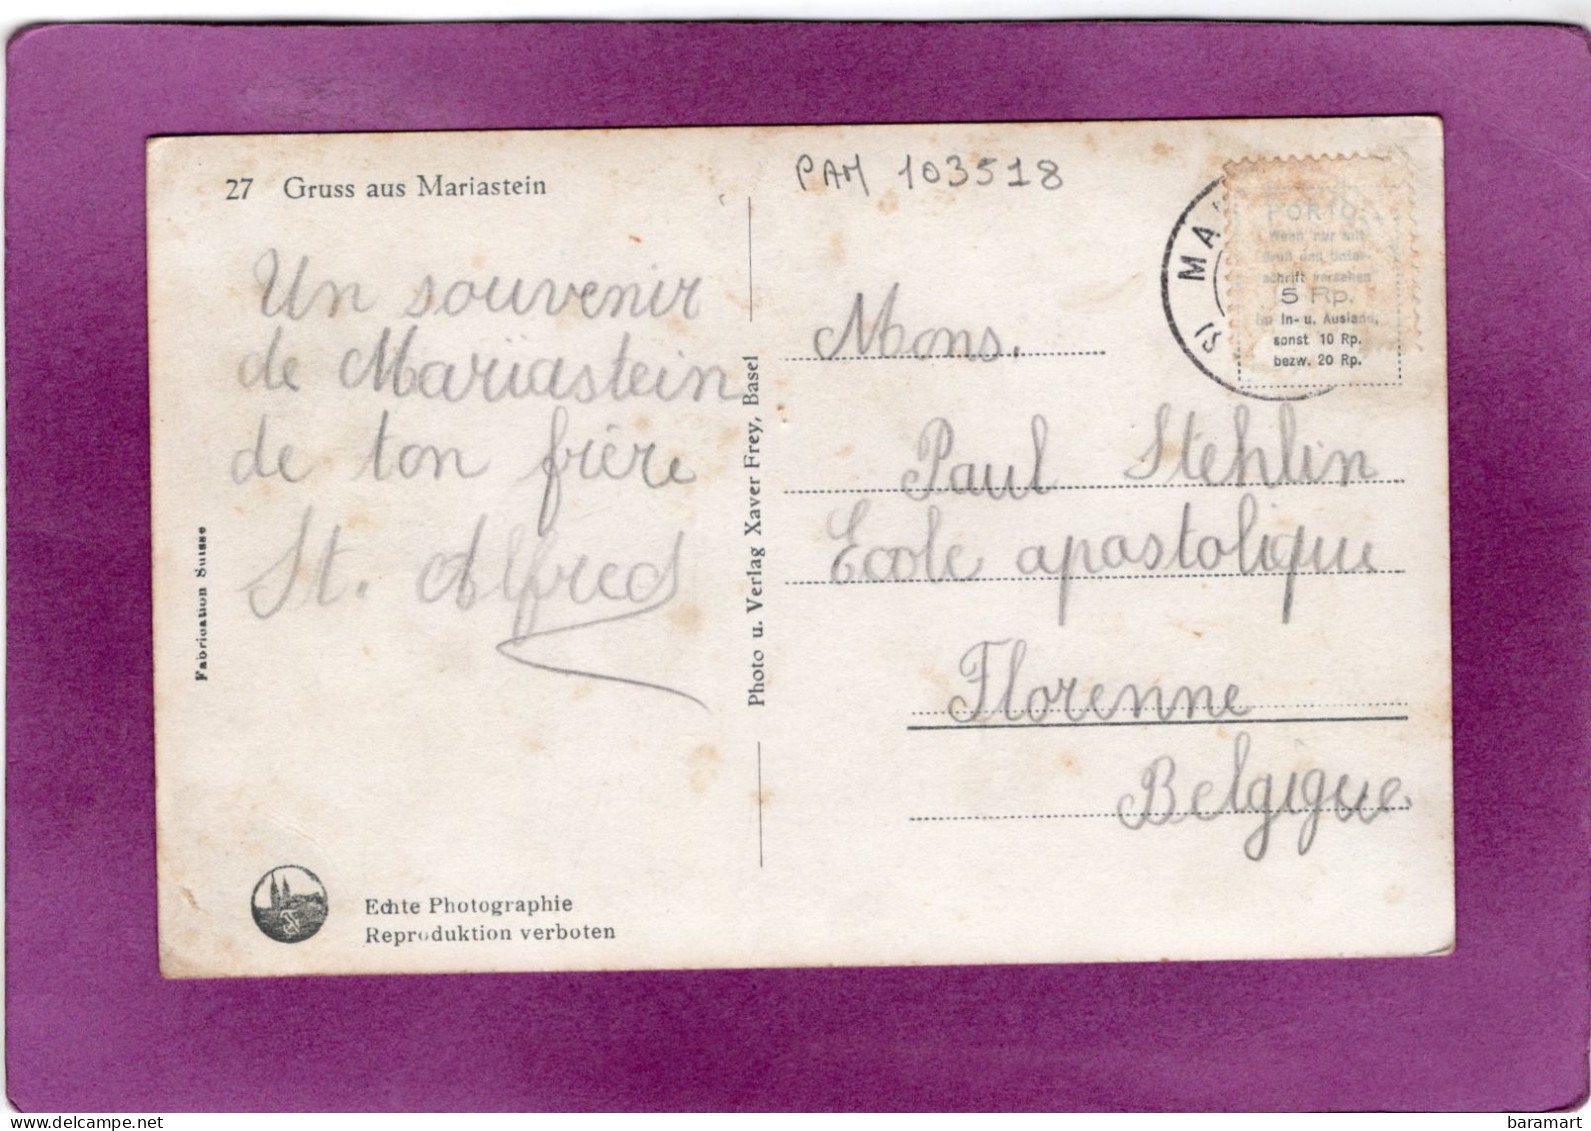 27 Gruss aus Mariastein
PAM 103518
Un souvenir
de Mariastein
de ton frère
St. Alfred
Fabrication Suisse
Photo u. Verlag Xaver Frey, Basel
MA
PORTO:
Wenn nur mit
Gruß und Unter-
schrift versehen
5 Rp.
im In- u. Ausland,
sonst 10 Rp.
bezw. 20 Rp.
Mons.
Paul Stehlin
Ecole apostolique
Florenne
Belgique
Echte Photographie
Reproduktion verboten
www.delcampe.net
baramart